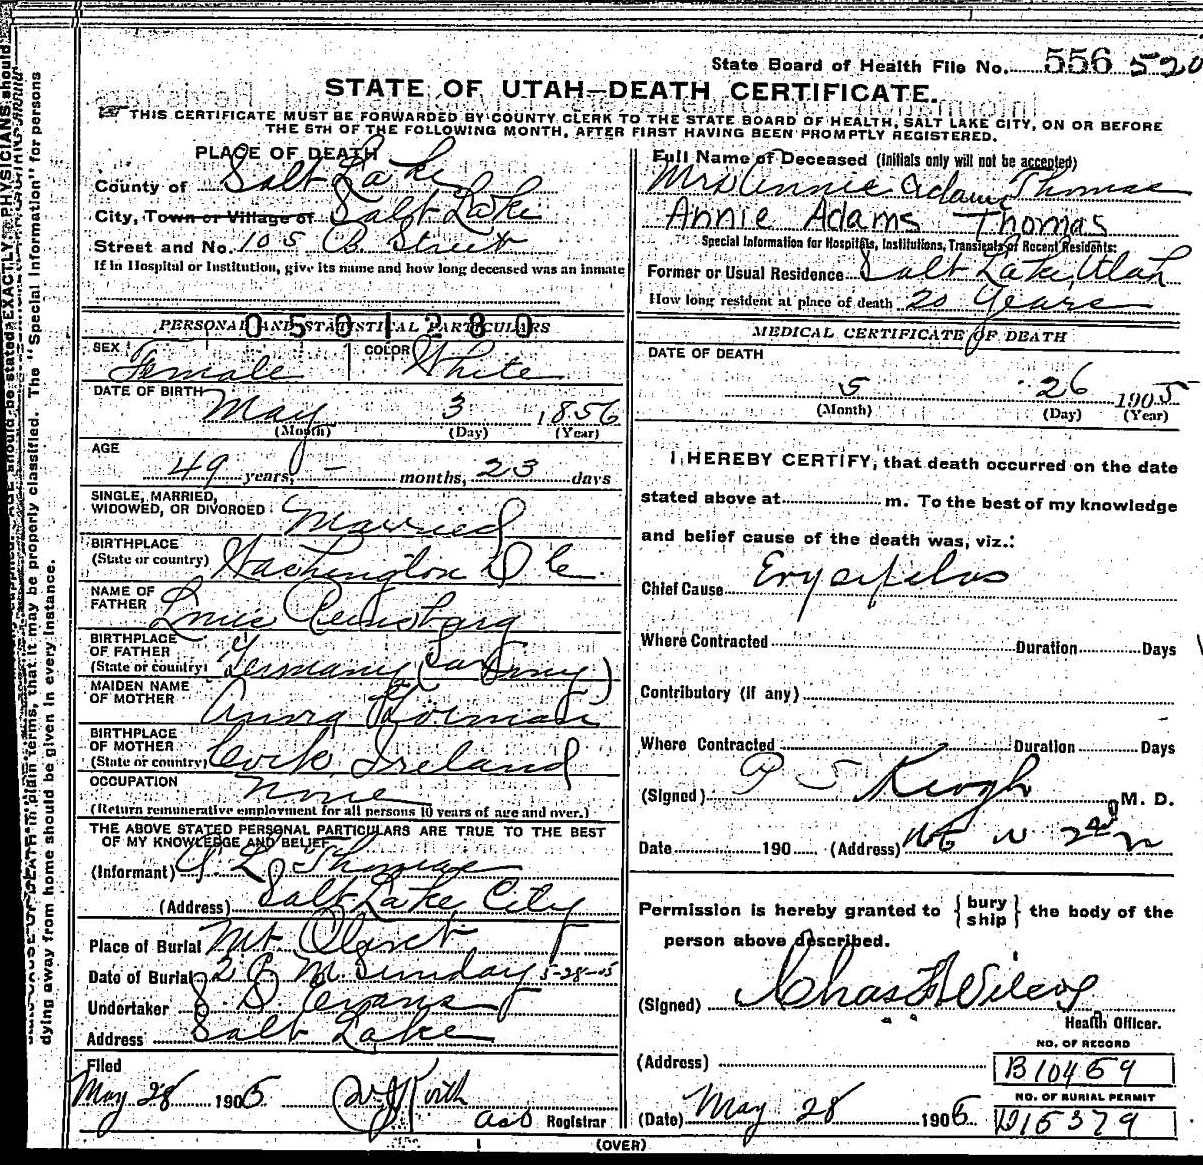 State Board of Health File No. 556 520
STATE OF UTAH—DEATH CERTIFICATE.
THIS CERTIFICATE MUST BE FORWARDED BY COUNTY CLERK TO THE STATE BOARD OF HEALTH, SALT LAKE CITY, ON OR BEFORE
THE 5TH OF THE FOLLOWING MONTH, AFTER FIRST HAVING BEEN PROMPTLY REGISTERED.
PLACE OF DEATH
County of Salt Lake
City, Town or Village of Salt Lake
Street and No. 105 B. Street
If in Hospital or Institution, give its name and how long deceased was an inmate
PERSONAL AND STATISTICAL PARTICULARS
0501280
SEX: Female COLOR White
DATE OF BIRTH May 3 1856
(Month) (Day) (Year)
AGE
49 years, – months, 23 days
SINGLE, MARRIED,
WIDOWED, OR DIVORCED Married
BIRTHPLACE
(State or country) Washington D C.
NAME OF
FATHER
BIRTHPLACE
OF FATHER
(State or country) Germany
MAIDEN NAME
OF MOTHER
BIRTHPLACE
OF MOTHER
(State or country) Cork, Ireland
OCCUPATION None
(Return remunerative employment for all persons 10 years of age and over.)
THE ABOVE STATED PERSONAL PARTICULARS ARE TRUE TO THE BEST
OF MY KNOWLEDGE AND BELIEF
(Informant) A L Thomas
(Address) Salt Lake City
Place of Burial Mt Olivet
Date of Burial 2 P M Sunday 5-28-05
Undertaker S. D. Evans
Address Salt Lake
Filed
May 28 1905
Registrar
Full Name of Deceased (Initials only will not be accepted)
Mrs Annie Adams Thomas
Annie Adams Thomas
Special Information for Hospitals, Institutions, Transients or Recent Residents:
Former or Usual Residence Salt Lake, Utah
How long resident at place of death 20 Years
MEDICAL CERTIFICATE OF DEATH
DATE OF DEATH
5 26 1905
(Month) (Day) (Year)
I HEREBY CERTIFY, that death occurred on the date
stated above at m. To the best of my knowledge
and belief cause of the death was, viz.:
Chief Cause Erysipelas
Where Contracted Duration Days
Contributory (if any)
Where Contracted Duration Days
(Signed) P S Keogh M. D.
Date 190 (Address)
Permission is hereby granted to {bury ship} the body of the
person above described.
(Signed) Chas F Wilcox
Health Officer.
(Address)
NO. OF RECORD
B10469
NO. OF BURIAL PERMIT
(Date) May 28 1905 15379
(OVER)
dying away from home should be given in every instance.